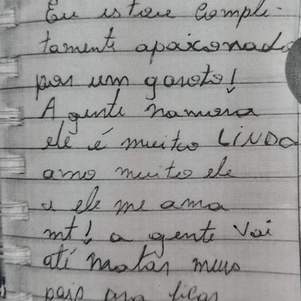 Eu estou comple-
tamente apaixonada
por um garoto!
A gente namora
ele é muito LINDO
amo muito ele
e ele me ama
mt! a gente vai
até matar meus
pais pra ficar